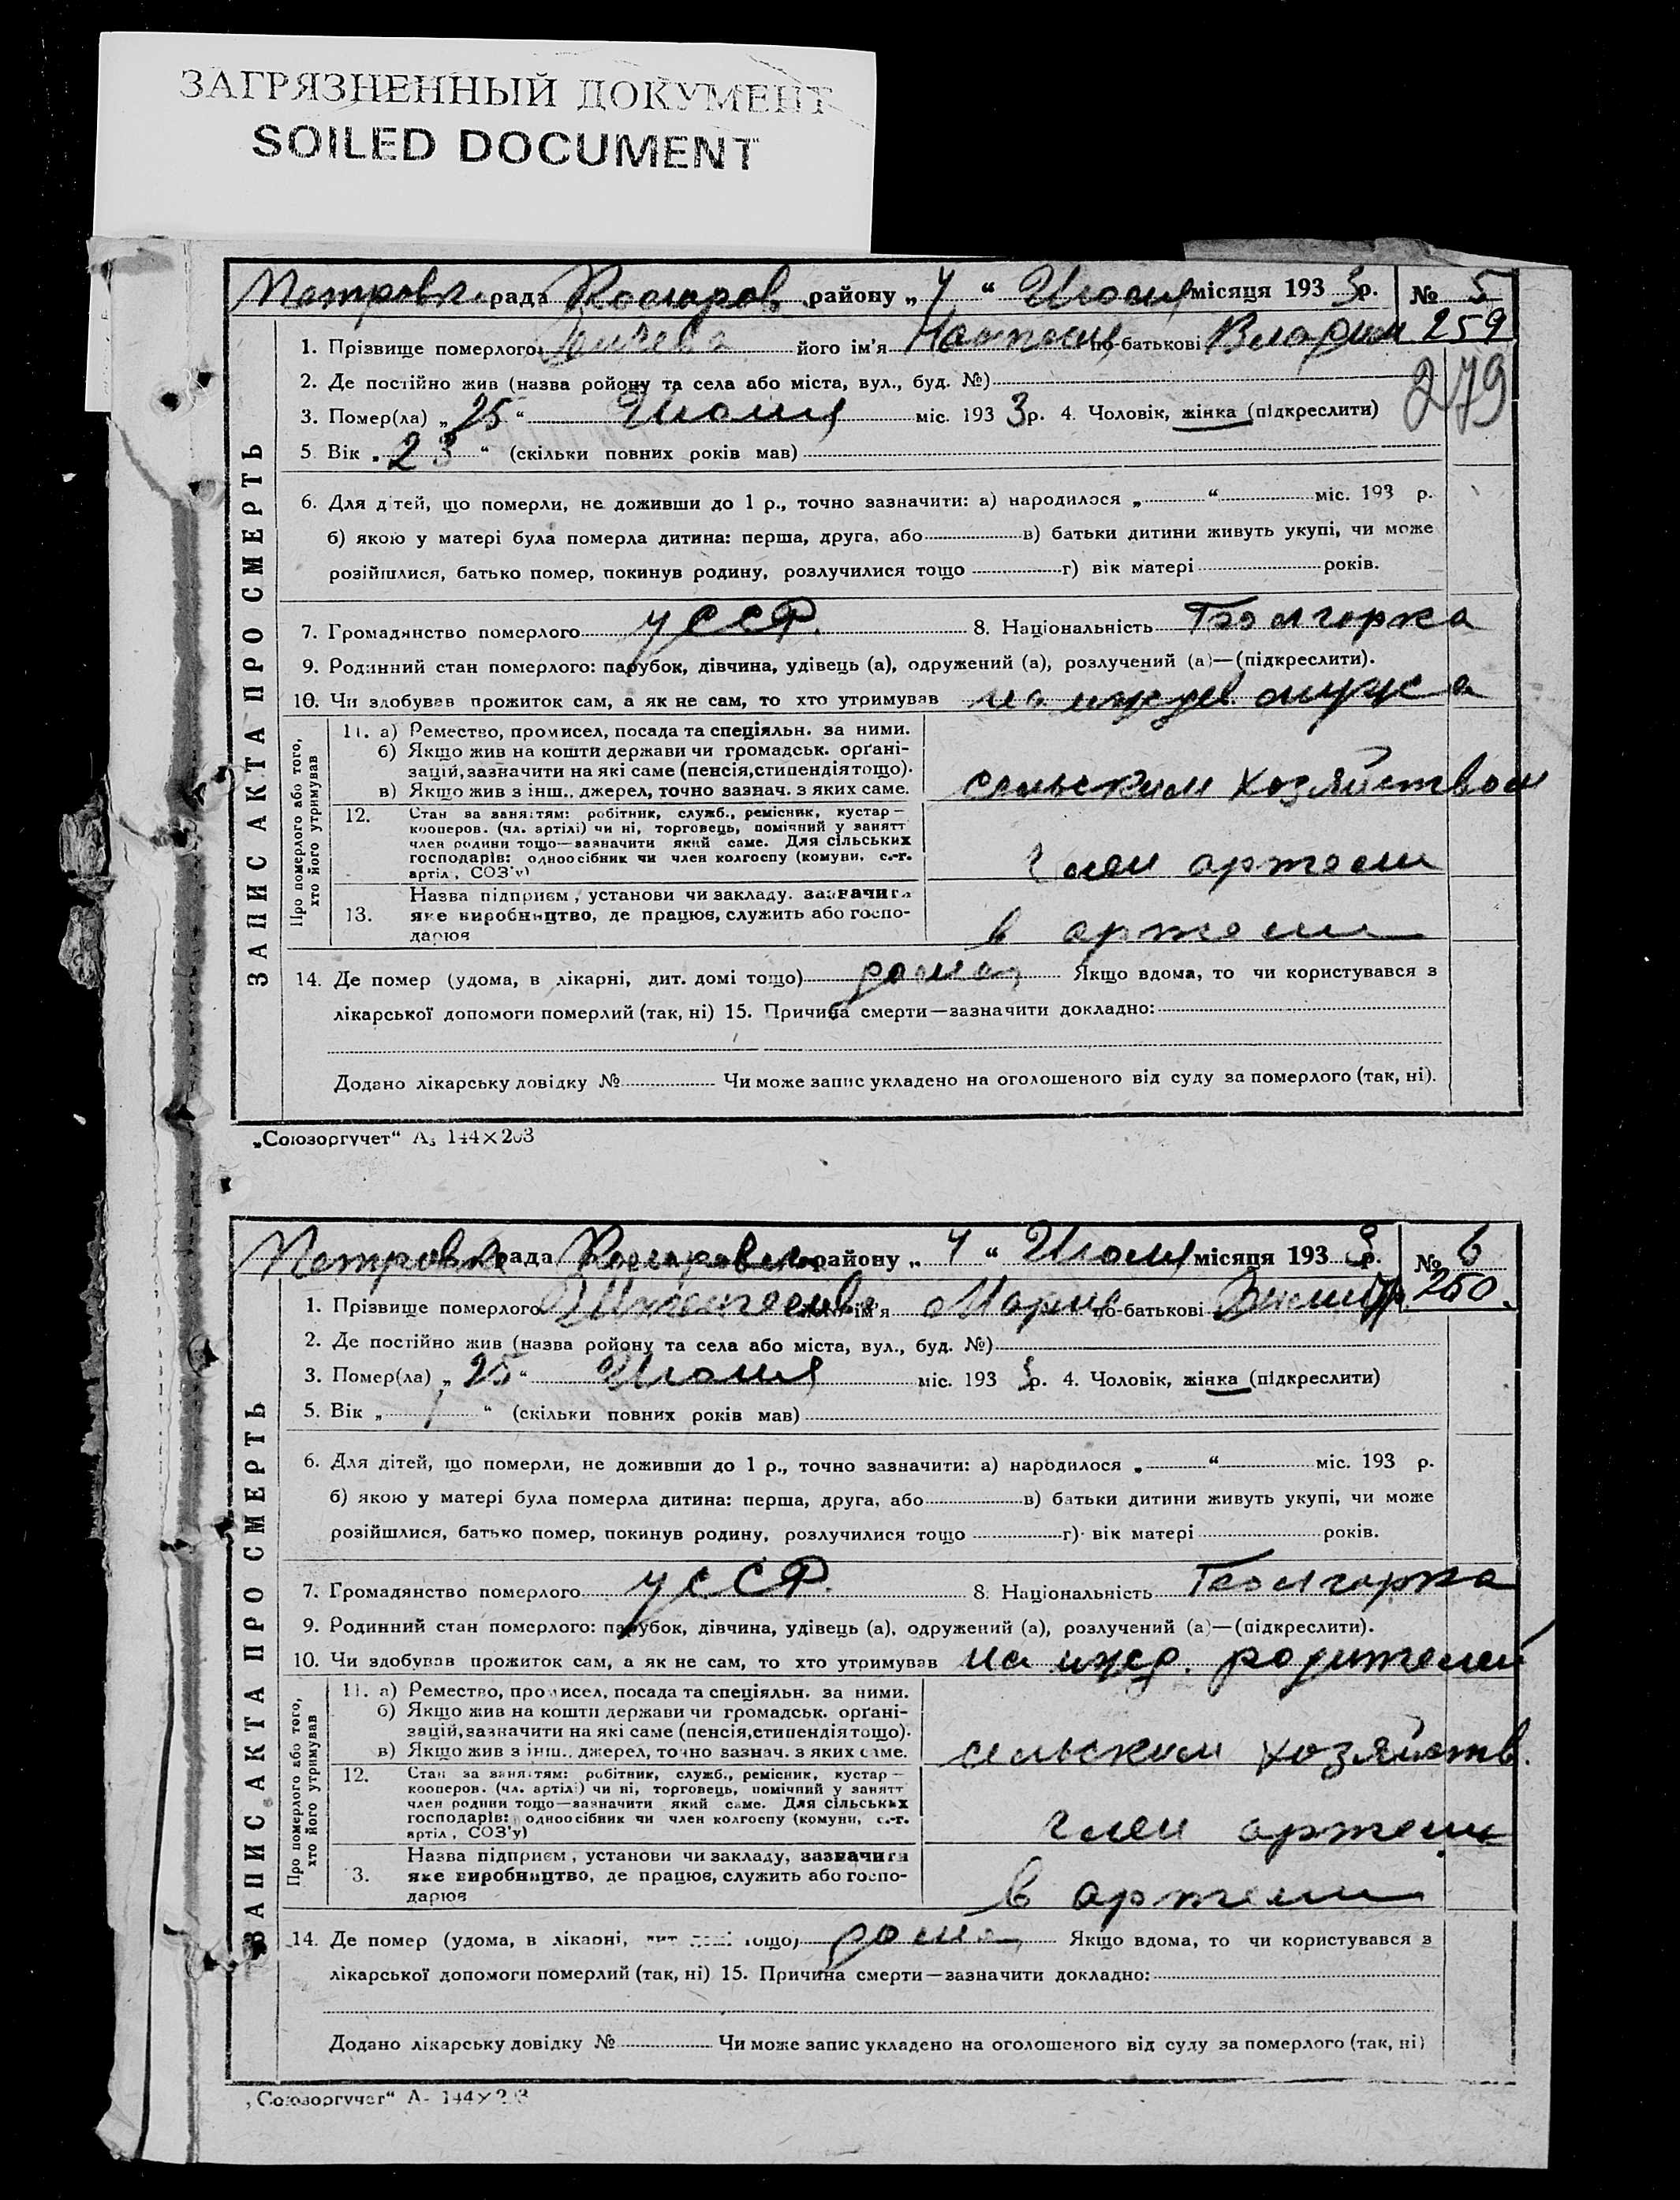 ЗАГРЯЗНЕННЫЙ ДОКУМЕНТ
SOILED DOCUMENT
рада района „ 4 “ місяця 193 3 р. № 5
1. Прізвище померлого його ім’я по-батькові 259
2. Де постійно жив (назва ройону та села або міста, вул., буд. №) 279
3. Помер(ла) „ 25 “ міс. 193 3 р. 4. Чоловік, жінка (підкреслити)
5 Вік „ 23 “ (скільки повних років мав)
6. Для дітей, що померли, не доживши до 1 р., точно зазначити: а) народилося „ “ міс. 193 р.
б) якою у матері була померла дитина: перша, друга, або в) батьки дитини живуть укупі, чи може
розійшлися, батько помер, покинув родину, розлучилися тощо г) вік матері років.
7. Громадянство померлого УССР. 8. Національність Болгорка
9. Родинний стан померлого: парубок, дівчина, удівець (а), одружений (а), розлучений (а)—(підкреслити).
10. Чи здобував прожиток сам, а як не сам, то хто утримував на иждев. мужа
ЗАПИС АКТА ПРО СМЕРТЬ
Про померлого або того,
хто його утримував
11. а) Ремество, промисел, посада та спеціяльн. за ними.
б) Якщо жив на кошти держави чи громадськ. орґані-
зацій, зазначити на які саме (пенсія, стипендія тощо).
в) Якщо жив з інш.. джерел, точно зазнач. з яких саме.
сельским хозяйством
12. Стан за заняттям: робітник, служб., ремісник, кустар—
кооперов. (чл. артілі) чи ні, торговець, помічний у занятт
член родини тощо—зазначити який саме. Для сільських
господарів: одноосібник чи член колгоспу (комуни, с.-г.
артіл., СОЗ’у)
член артели
13. Назва підприєм., установи чи закладу. зазначити
яке виробництво, де працює, служить або госпо-
дарює
в артели
14. Де помер (удома, в лікарні, дит. домі тощо) дома Якщо вдома, то чи користувався з
лікарської допомоги померлий (так, ні) 15. Причина смерти—зазначити докладно:
Додано лікарську довідку № Чи може запис укладено на оголошеного від суду за померлого (так, ні).
„Союзоргучет“ А₅ 144×203
рада району „ 4 “ місяця 193 3 р. № 6
1. Прізвище померлого ім’я Мария по-батькові 260.
2. Де постійно жив (назва ройону та села або міста, вул., буд. №)
3. Помер(ла) „ 25 “ міс. 193 3 р. 4. Чоловік, жінка (підкреслити)
5. Вік „ 1 “ (скільки повних років мав)
6. Для дітей, що померли, не доживши до 1 р., точно зазначити: а) народилося „ “ міс. 193 р.
б) якою у матері була померла дитина: перша, друга, або в) батьки дитини живуть укупі, чи може
розійшлися, батько помер, покинув родину, розлучилися тощо г) вік матері років.
7. Громадянство померлого УССР. 8. Національність Болгорка
9. Родинний стан померлого: парубок, дівчина, удівець (а), одружений (а), розлучений (а)—(підкреслити).
10. Чи здобував прожиток сам, а як не сам, то хто утримував на ижд. родителей
ЗАПИС АКТА ПРО СМЕРТЬ
Про померлого або того,
хто його утримував
11. а) Ремество, промисел, посада та спеціяльн. за ними.
б) Якщо жив на кошти держави чи громадськ. орґані-
зацій, зазначити на які саме (пенсія, стипендія тощо).
в) Якщо жив з інш.. джерел, точно зазнач. з яких саме.
сельским хозяйств.
12. Стан за заняттям: робітник, служб., ремісник, кустар—
кооперов. (чл. артілі) чи ні, торговець, помічний у занятт
член родини тощо—зазначити який саме. Для сільських
господарів: одноосібник чи член колгоспу (комуни, с.-г.
артіл., СОЗ’у)
член артели
3. Назва підприєм., установи чи закладу, зазначити
яке виробництво, де працює, служить або госпо-
дарює
в артели
14. Де помер (удома, в лікарні, тощо) дома Якщо вдома, то чи користувався з
лікарської допомоги померлий (так, ні) 15. Причина смерти—зазначити докладно:
Додано лікарську довідку № Чи може запис укладено на оголошеного від суду за померлого (так, ні)
„Союзоргучет“ А- 144×203